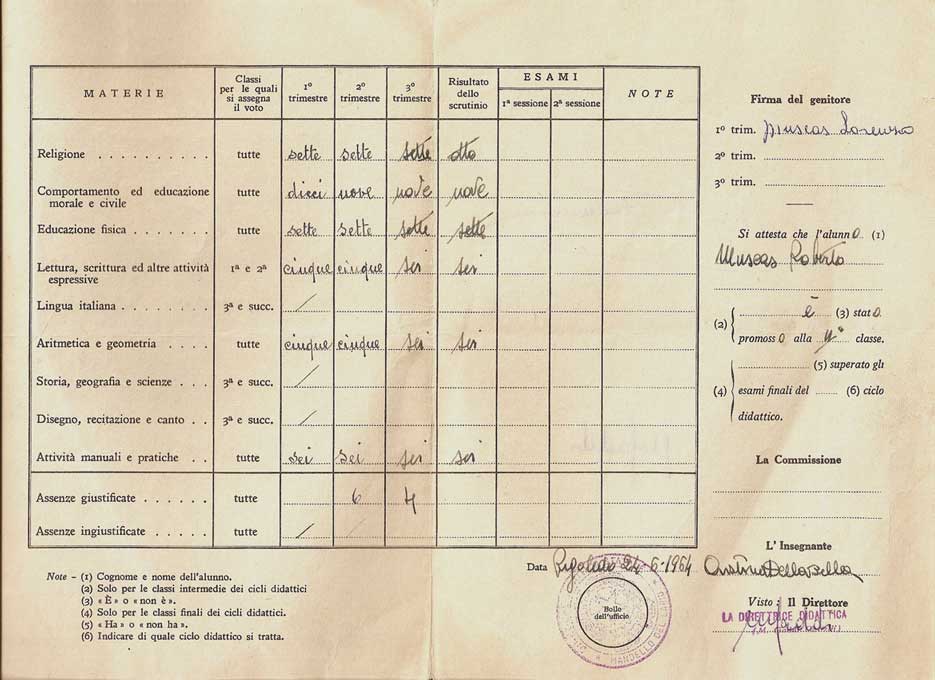 MATERIE
Classi per le quali si assegna il voto
1º trimestre
2º trimestre
3º trimestre
Risultato dello scrutinio
ESAMI
1ª sessione 2ª sessione
NOTE
Religione . . . . . . . . . . tutte sette sette sette otto
Comportamento ed educazione morale e civile tutte dieci nove nove nove
Educazione fisica . . . . . . . tutte sette sette sette sette
Lettura, scrittura ed altre attività espressive 1ª e 2ª cinque cinque sei sei
Lingua italiana . . . . . . . . 3ª e succ. /
Aritmetica e geometria . . . . tutte cinque cinque sei sei
Storia, geografia e scienze . . . 3ª e succ. /
Disegno, recitazione e canto . . 3ª e succ. /
Attività manuali e pratiche . . tutte sei sei sei sei
Assenze giustificate . . . . . . tutte 6 4
Assenze ingiustificate . . . . . tutte / /
Note - (1) Cognome e nome dell'alunno.
(2) Solo per le classi intermedie dei cicli didattici
(3) «È» o «non è».
(4) Solo per le classi finali dei cicli didattici.
(5) «Ha» o «non ha».
(6) Indicare di quale ciclo didattico si tratta.
Data 24-6-1964
Bollo dell'ufficio
MANDELLO DEL
Firma del genitore
1º trim. Muscas Lorenzo
2º trim.
3º trim.
Si attesta che l'alunno (1)
Muscas Roberto
(2) è (3) stato
promosso alla IIª classe.
(5) superato gli
(4) esami finali del (6) ciclo
didattico.
La Commissione
L'Insegnante
Visto: Il Direttore
LA DIRETTRICE DIDATTICA